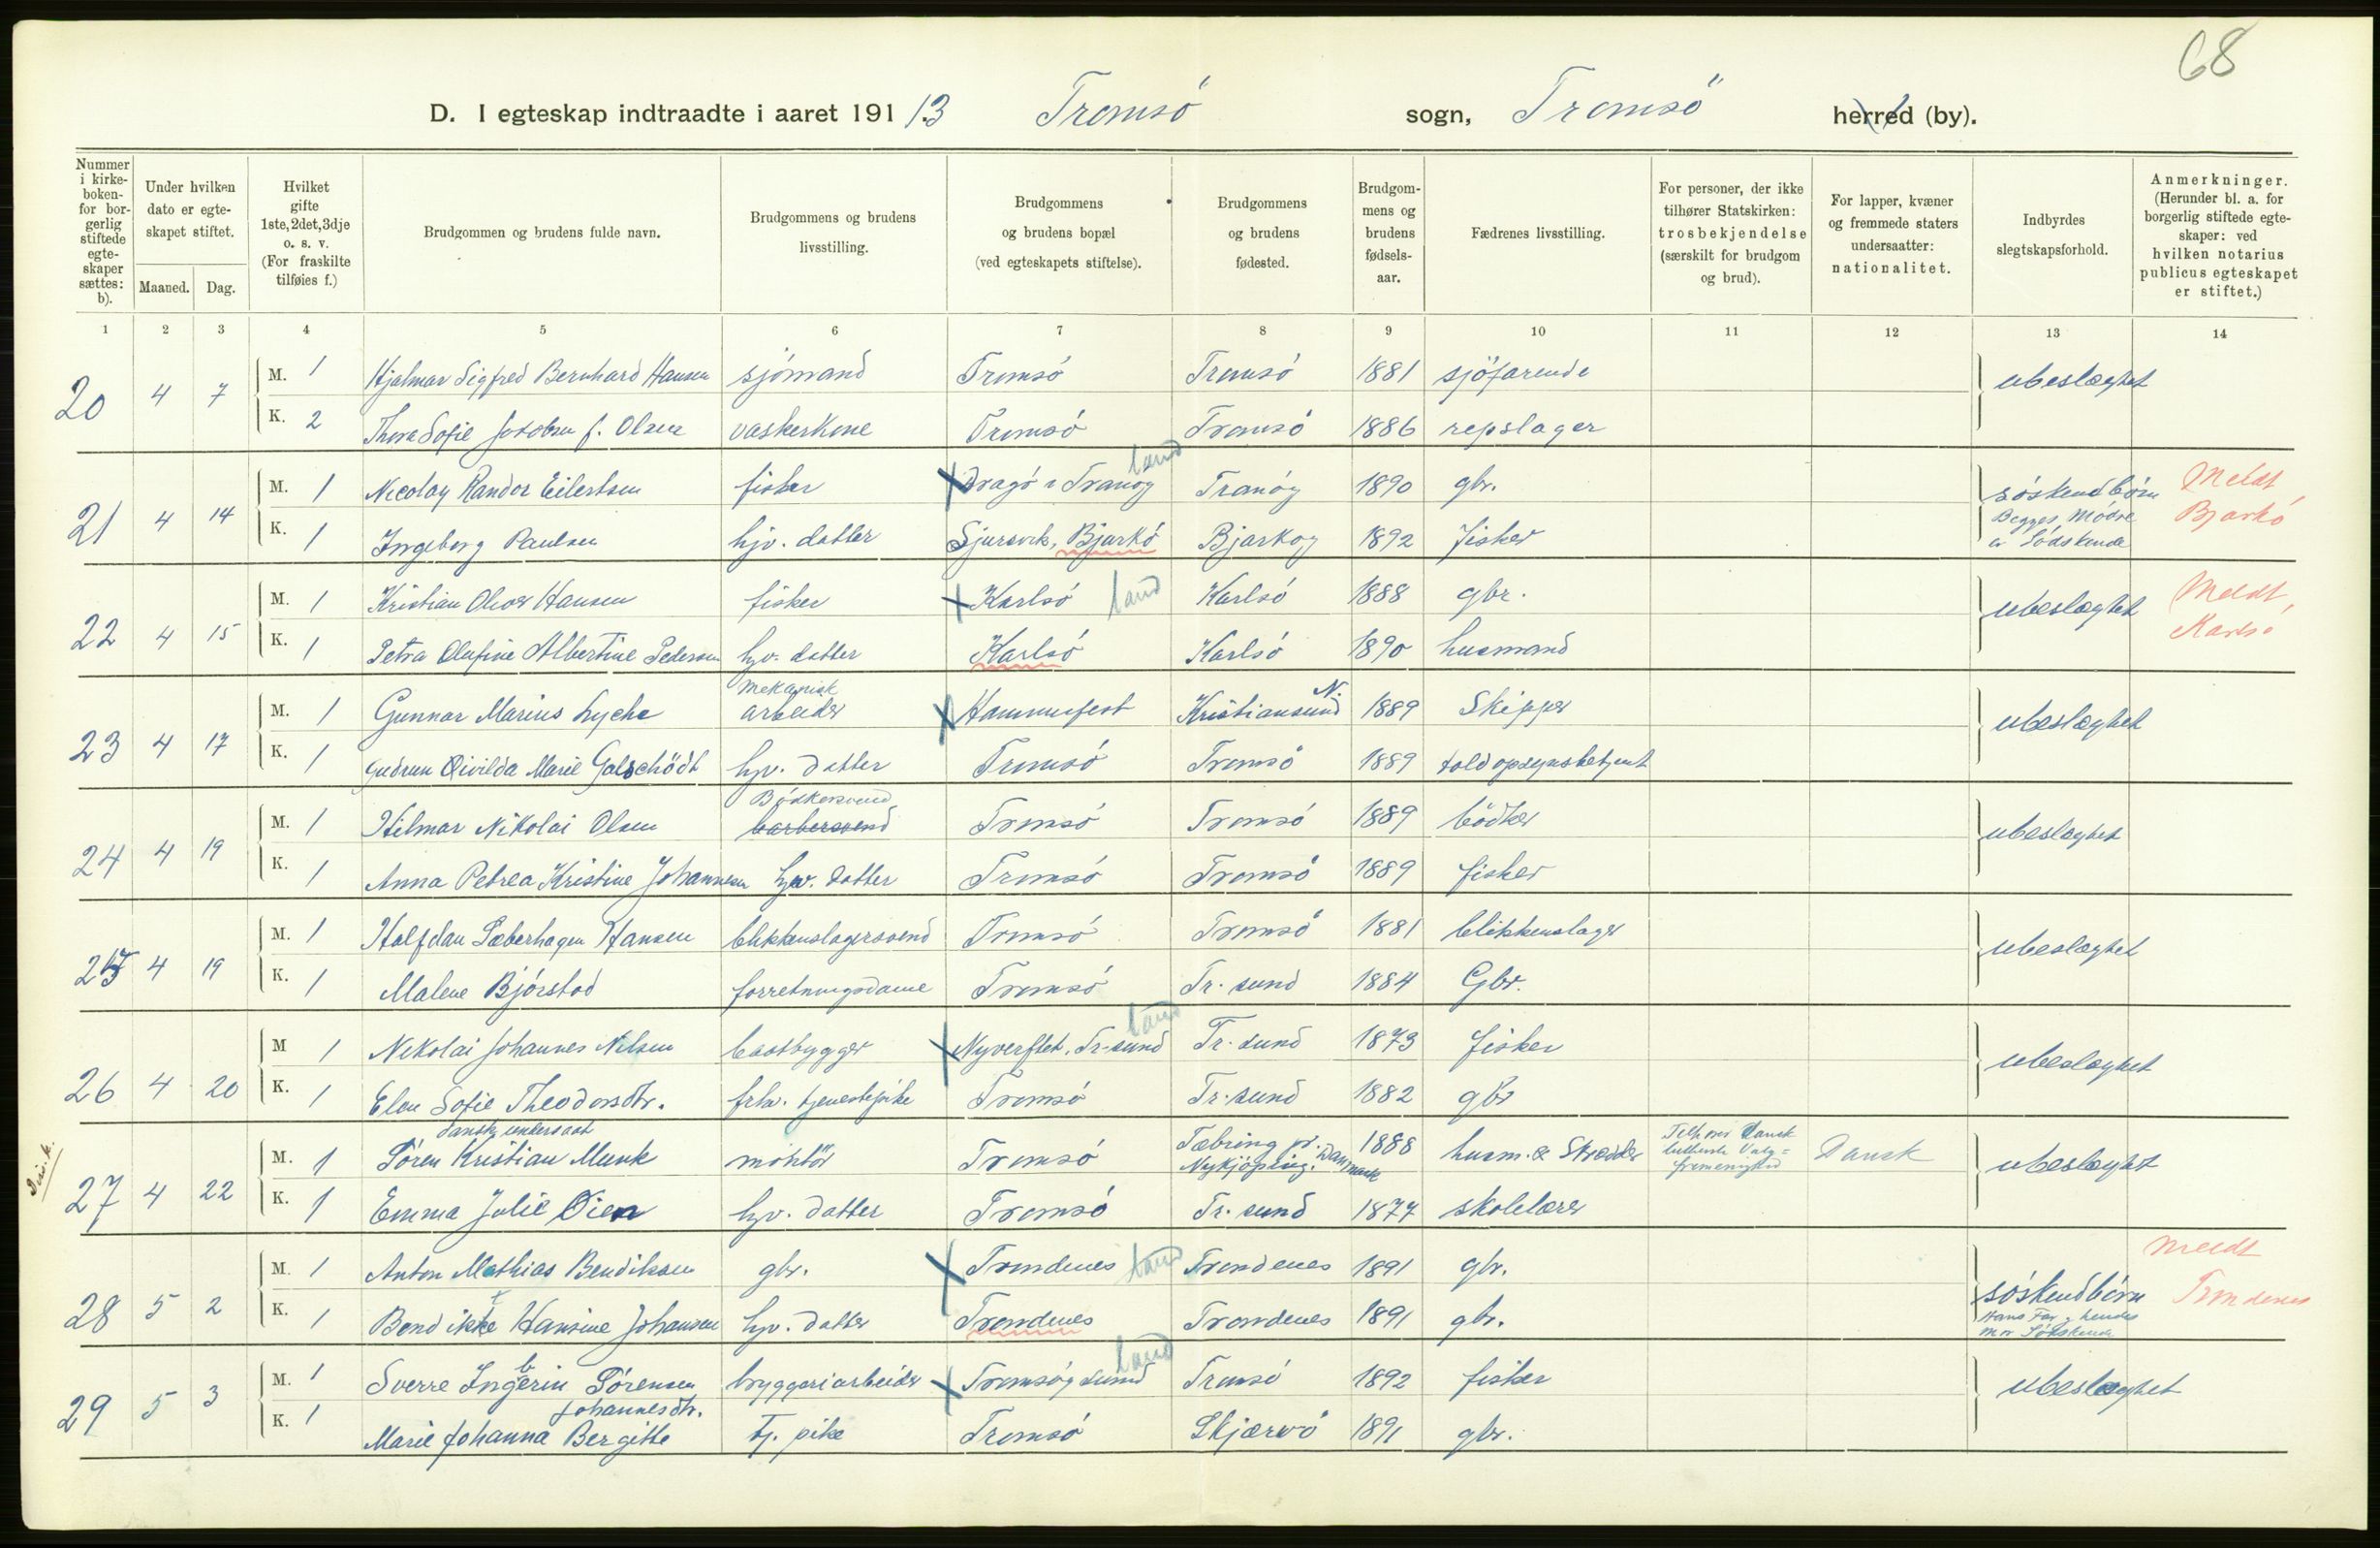 68
D. I egteskap indtraadte i aaret 191 13 Tromsö sogn, Tromsö herred (by).
Nummer i kirkeboken- for borgerlig stiftede egteskaper sættes: b).
Under hvilken dato er egteskapet stiftet.
Maaned. Dag.
Hvilket gifte 1ste, 2det, 3dje o. s. v. (For fraskilte tilføies f.)
Brudgommen og brudens fulde navn.
Brudgommens og brudens livsstilling.
Brudgommens og brudens bopæl (ved egteskapets stiftelse).
Brudgommens og brudens fødested.
Brudgommens og brudens fødselsaar.
Fædrenes livsstilling.
For personer, der ikke tilhører Statskirken: trosbekjendelse (særskilt for brudgom og brud).
For lapper, kvæner og fremmede staters undersaatter: nationalitet.
Indbyrdes slegtskapsforhold.
Anmerkninger. (Herunder bl. a. for borgerlig stiftede egteskaper: ved hvilken notarius publicus egteskapet er stiftet.)
1 2 3 4 5 6 7 8 9 10 11 12 13 14
20 4 7 M. 1 Hjalmar Sigfred Bernhard Hansen sjómand Tromsó Tromsó 1881 sjöfarende ubeslægtet
K. 2 Thora Sofie Jakobsen f. Olsen vaskerkone Tromsó Tromsó 1886 repslager
21 4 14 M. 1 Nicolay Randor Eilertsen fisker Dragó i Tranöy land Tranöy 1890 gbr. söskendbörn Meldt
K. 1 Ingeborg Paulsen hjv. datter Sjursvik, Bjarkó Bjarkoy 1892 fisker Begges Mödre er Södskende Bjarkö
22 4 15 M. 1 Kristian Oluver Hansen fisker Karlsó land Karlsó 1888 gbr. ubeslægtet Meldt,
K. 1 Petra Olufine Albertine Pedersen hjv. datter Karlsó Karlsó 1890 husmand Karlsö
23 4 17 M. 1 Gunnar Marius Lyche mekanisk arbeider Hammerfest Kristiansund N. 1889 Skipper ubeslægtet
K. 1 Gudrun Qivilda Marie Galschödt hjv. datter Tromsó Tromsó 1889 toldopsynsbetjent
24 4 19 M. 1 Hilmar Nikolai Olsen Bödkersvend barbersvend Tromsó Tromsó 1889 bödker ubeslægtet
K. 1 Anna Petrea Kristine Johannesen hjv. datter Tromsó Tromsó 1889 fisker
25 4 19 M. 1 Halfdan Sæberhagen Hansen blikkenslagersvend Tromsó Tromsó 1881 blikkenslager ubeslægtet
K. 1 Malene Bjórstad forretningsdame Tromsó Tr. sund 1884 Gbr.
26 4 20 M 1 Nikolai Johannes Nilsen baatbygger Nyverftet, Tr. sund land Tr. sund 1873 fisker ubeslægtet
K. 1 Elen Sofie Theodorsdtr. frhv. tjenestepike Tromsó Tr. sund 1882 gbr
27 4 22 M. 1 dansk undersaat Sören Kristian Munk montör Tromsó Tæbring pr. Nykjöping, Danmark 1888 husm. & Skrædder Tilhører Dansk lutherske Valgfrimenighed Dansk ubeslægtet
K. 1 Emma Julie Öien hjv. datter Tromsó Tr. sund 1877 skolelærer
28 5 2 M. 1 Anton Mathias Bendiksen gbr. Trondenes land Trondenes 1891 gbr. söskendbörn Meldt
K. 1 Bendikke Hansine Johansen hjv. datter Trondenes Trondenes 1891 gbr. Hans Far, hendes Mor Södskende Trondenes
29 5 3 M. 1 Sverre Ingebrin Sörensen bryggeriarbeider Tromsöysund land Tromsó 1892 fisker ubeslægtet
K. 1 Marie Johanna Bergitte Johannesdtr. tj. pike Tromsó Skjærvö 1891 gbr.